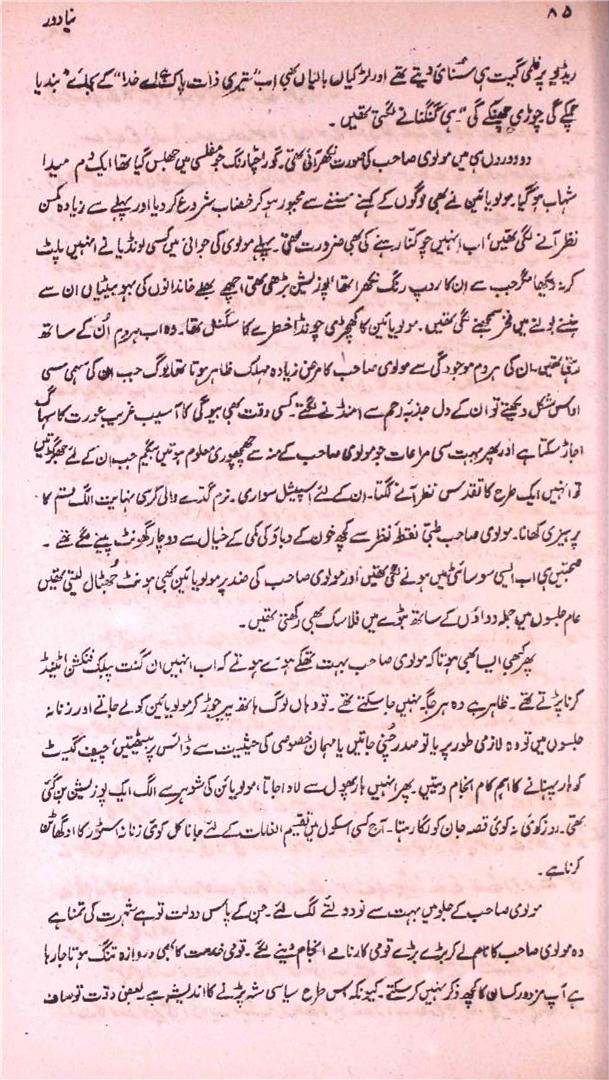 ۸۵
نیا دور
ریڈیو پر فلمی گیت ہی سنائی دیتے تھے اور لڑکیاں بالیاں بھی اب "تیری ذات پاک ہے اے خدا" کے بجائے "بندیا
چمکے گی چوڑی چھنکے گی" ہی گنگنانے لگتی تھیں۔
دو دوروں ہی میں مولوی صاحب کی صورت نکھر آئی تھی۔ گورا چٹا رنگ جو مفلسی میں جھلس گیا تھا ایک دم میدا
شہاب ہو گیا۔ مولویائین نے بھی لوگوں کے کہنے سننے سے مجبور ہو کر خضاب شروع کر دیا اور پہلے سے زیادہ کمسن
نظر آنے لگی تھیں، اب انہیں چوکنا رہنے کی بھی ضرورت تھی۔ پہلے مولوی کی جوانی میں کسی لونڈیا نے انہیں پلٹ
کر نہ دیکھا مگر جب سے ان کا روپ رنگ نکھرا تھا، پوزیشن بڑھی تھی، اچھے بھلے خاندانوں کی بہو بیٹیاں ان سے
ہنسنے بولنے میں فخر سمجھنے لگی تھیں۔ مولویائین کا کھچڑی چونڈا خطرے کا سگنل تھا۔ وہ اب ہر دم اُن کے ساتھ
رہتی تھیں۔ ان کی ہر دم موجودگی سے مولوی صاحب کا مرض زیادہ مہلک ظاہر ہوتا تھا لوگ جب ان کی سہمی سسی
اداس شکل دیکھتے تو ان کے دل جذبۂ رحم سے امنڈنے لگتے۔ کسی وقت بھی بیوگی کا آسیب غریب عورت کا سہاگ
اجاڑ سکتا ہے اور پھر بہت سی مراعات جو مولوی صاحب کے منہ سے چھچھوری معلوم ہوتیں بیگم جب ان کے لئے جھگڑتیں
تو انہیں ایک طرح کا تقدس نظر آنے لگتا۔ ان کے لئے اسپیشل سواری۔ نرم گدے والی کرسی نہایت الگ قسم کا
پرہیزی کھانا۔ مولوی صاحب طبّی نقطۂ نظر سے کچھ خون کے دباؤ کی کمی کے خیال سے دو چار گھونٹ پینے لگے تھے۔
صحبتیں ہی اب ایسی سوسائٹی میں ہونے لگی تھیں اور مولوی صاحب کی ضد پر مولویائین بھی ہونٹ جُھٹال لیتی تھیں
عام جلسوں میں جملہ دواؤں کے ساتھ بٹوے میں فلاسک بھی رکھتی تھیں۔
پھر کبھی ایسا بھی ہوتا کہ مولوی صاحب بہت تھکے ہوئے ہوتے کہ اب انہیں ان گنت پبلک فنکشن اٹینڈ
کرنا پڑتے تھے۔ ظاہر ہے وہ ہر جگہ نہیں جا سکتے تھے۔ تو وہاں لوگ ہاتھ پیر جوڑ کر مولویائین کو لے جاتے اور زنانہ
جلسوں میں تو وہ لازمی طور پر یا تو صدر چنی جاتیں یا مہمان خصوصی کی حیثیت سے ڈائس پر بیٹھتیں، چیف گیسٹ
کو ہار پہنانے کا اہم کام انجام دیتیں۔ پھر انہیں ہار پھول سے لادا جاتا، مولویائن کی شوہر سے الگ ایک پوزیشن بن گئی
تھی۔ روز کوئی نہ کوئی قصہ جان کو لگا رہتا۔ آج کسی اسکول میں تقسیم انعامات کے لئے جانا کل کوئی زنانہ سٹور کا ادگھاٹن
کرنا ہے۔
مولوی صاحب کے جلو میں بہت سے نو دولتئے لگ لئے۔ جن کے پاس دولت تو ہے شہرت کی تمنا ہے
وہ مولوی صاحب کا نام لے کر بڑے بڑے قومی کارنامے انجام دینے لگے۔ قومی خدمت کا بھی دروازہ تنگ ہوتا جا رہا
ہے آپ مزدور کسان کا کچھ ذکر نہیں کر سکتے۔ کیونکہ اس طرح سیاسی شہ پڑنے کا اندیشہ ہے۔ یعنی دقت تو صاف